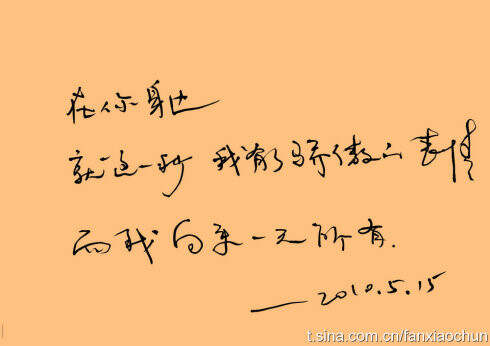 在你身边
就这一秒 我有了骄傲的表情
而我向来一无所有.
——2010.5.15
t.sina.com.cn/fanxiaochun